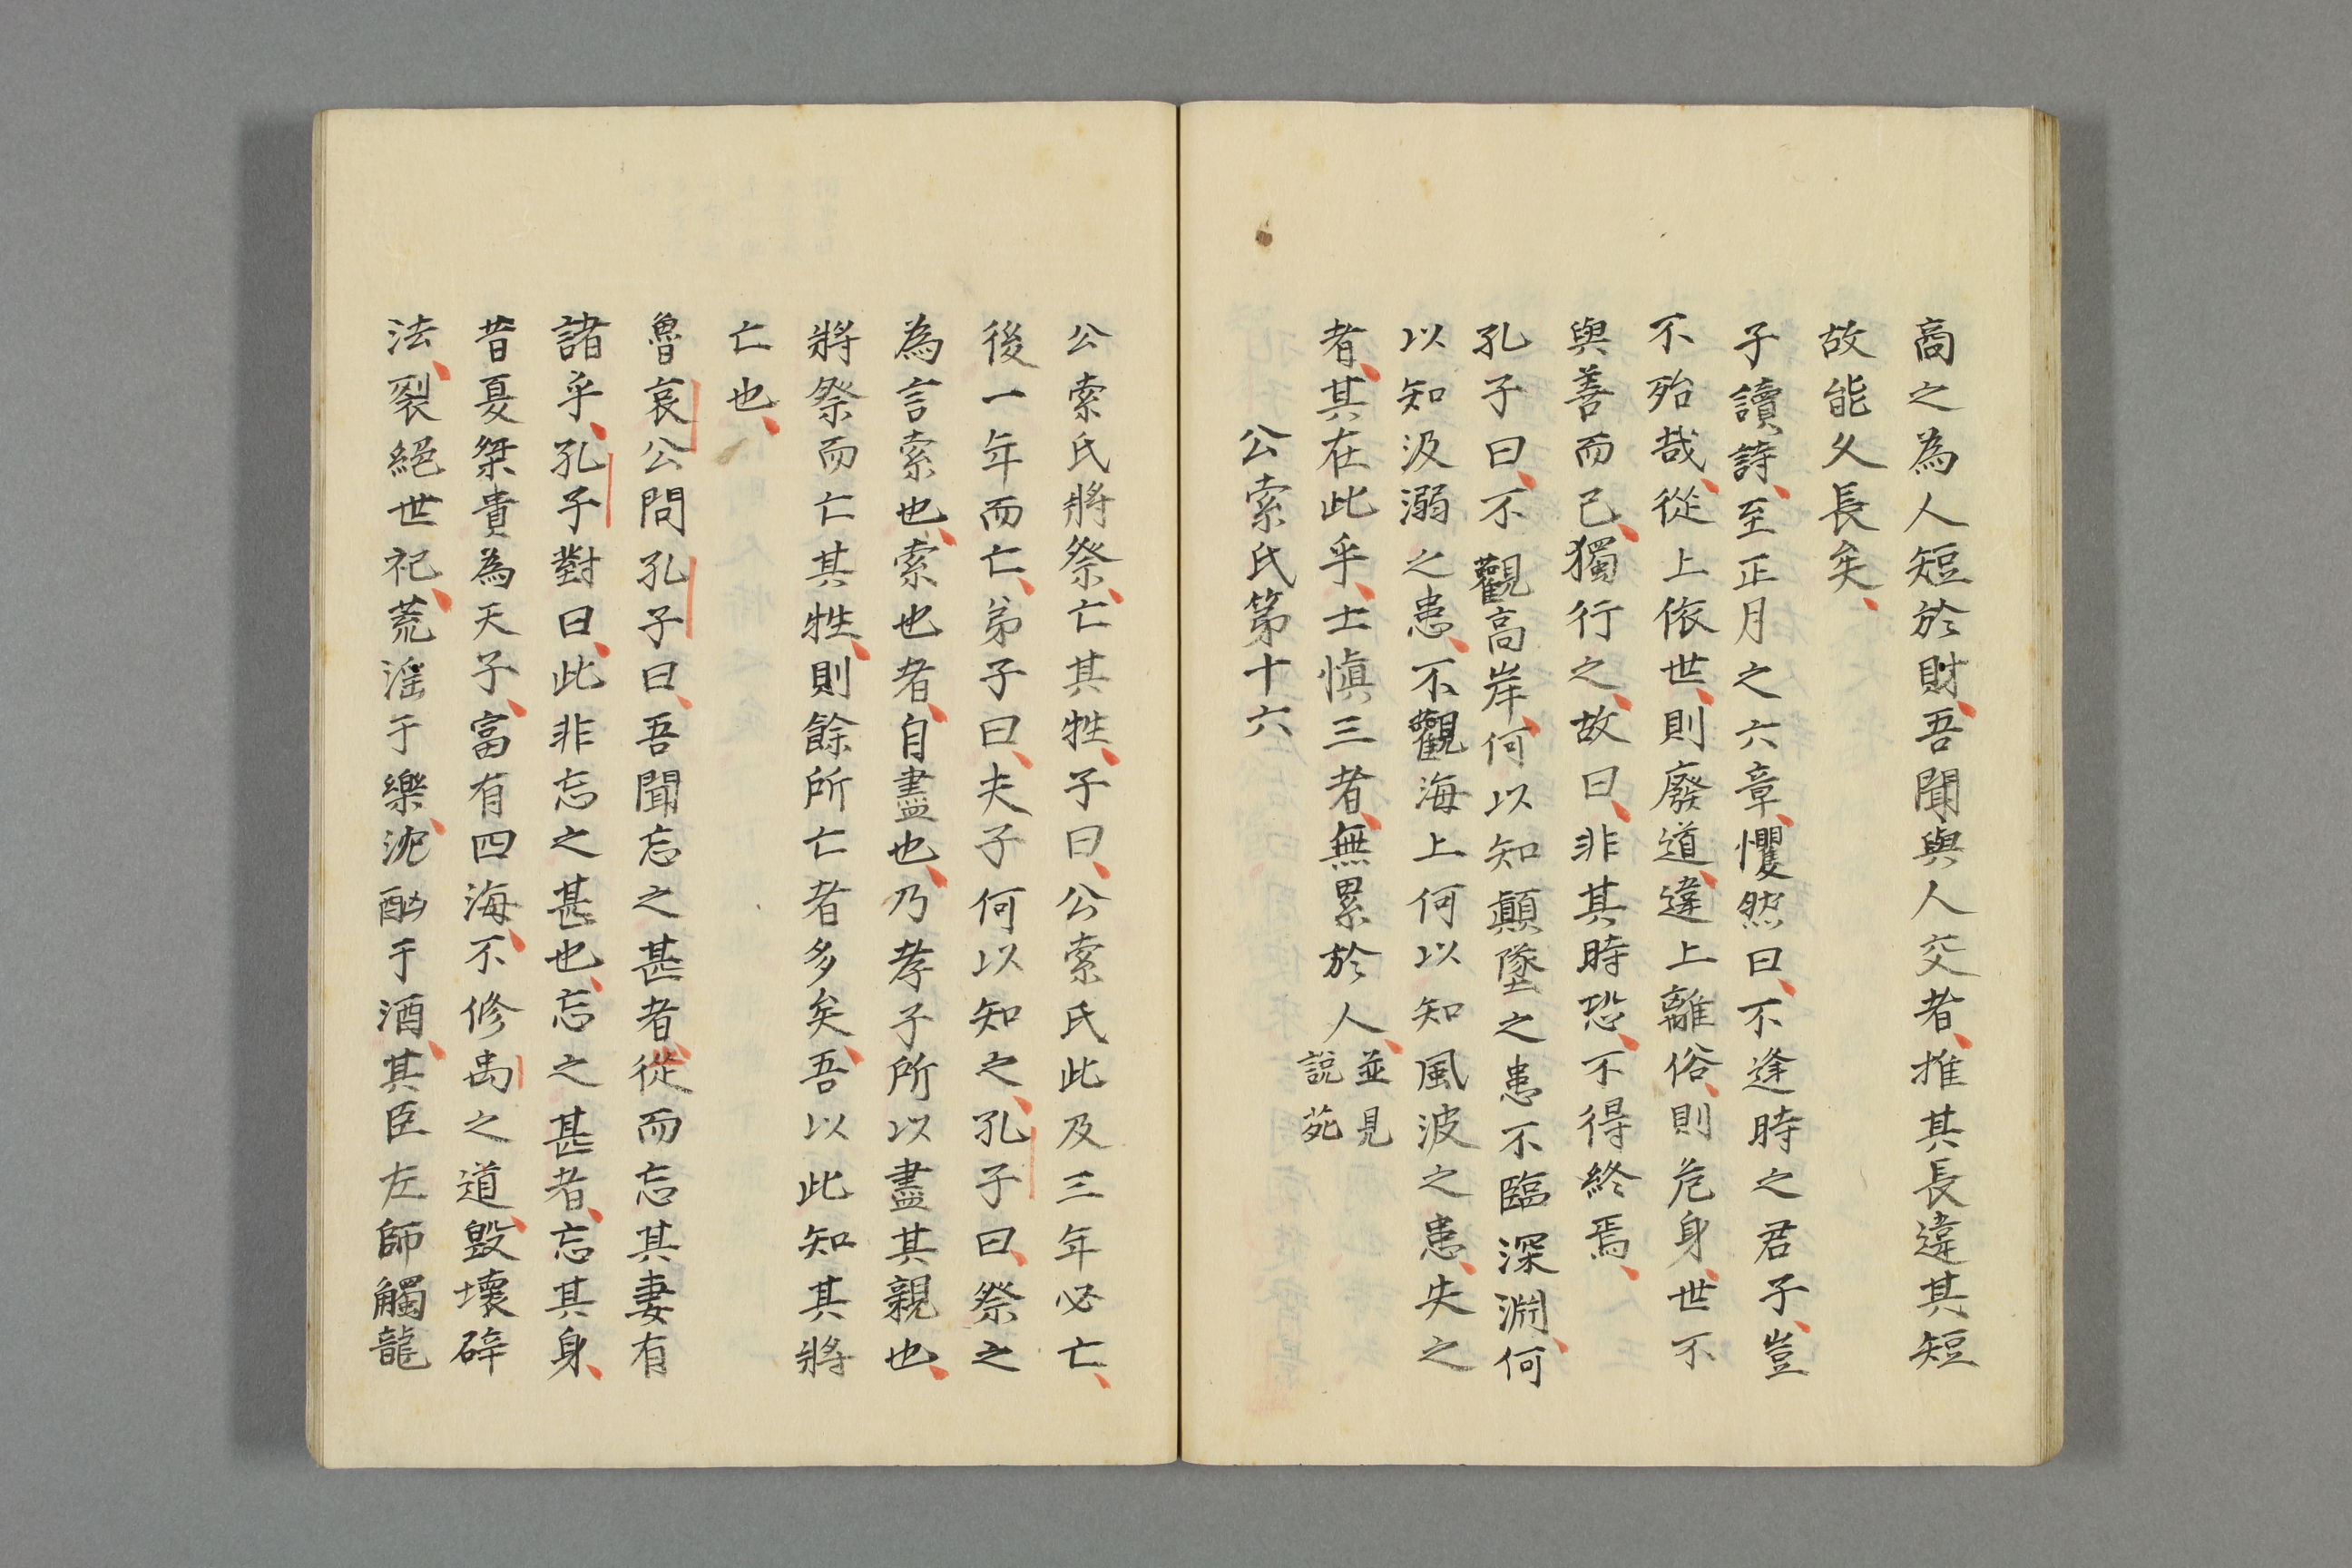 商之為人短於財、吾聞與人交者、推其長違其短
故能久長矣、
子讀詩、至正月之六章、懼然曰、不逢時之君子、豈
不殆哉、從上依世、則廢道、違上離俗、則危身、世不
與善而己、獨行之、故曰、非其時恐、不得終焉、
孔子曰、不觀高岸、何以知顚墜之患不臨深淵、何
以知汲溺之患、不觀海上何以知風波之患、失之
者、其在此乎、士愼三者、無累於人、並見說苑
公索氏第十六
公索氏將祭、亡其牲、子曰、公索氏此及三年必亡、
後一年而亡、弟子曰、夫子何以知之、孔子曰、祭之
為言索也、索也者、自盡也、乃孝子所以盡其親也、
將祭而亡其牲、則餘所亡者多矣、吾以此知其將
亡也、
魯哀公問孔子曰、吾聞忘之甚者、從而忘其妻有
諸乎、孔子對曰、此非忘之甚也、忘之甚者、忘其身、
昔夏桀貴為天子、富有四海、不修禹之道、毀壞辟
法、裂絕世祀、荒淫于樂、沈酗于酒、其臣左師觸龍